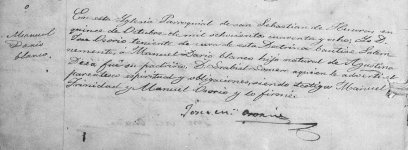 Manuel
Dario
blanco
En esta Yglesia Parroquial de san Sebastian de
quince de Octubre de mil ochocientos cuarenta y ocho, Yo D.
teniente de cura de esta bautizé solem
nemente, a Manuel Dario blanco hijo natural de Agustina
fué su padrino, D. Grabiel a quien le advertí el
parentesco espiritual y obligaciones, siendo testigos Manuel
Trinidad y Manuel Osorio y lo firmé
José